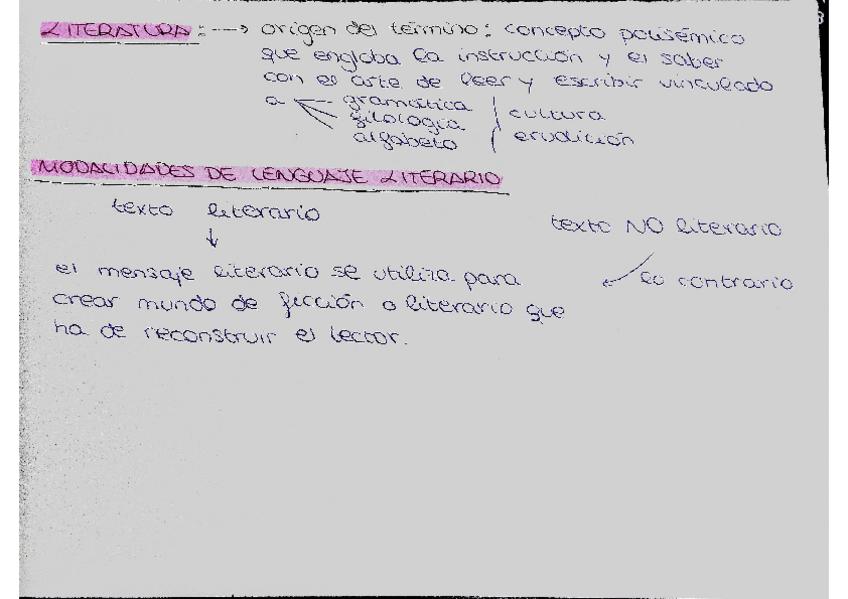 LITERATURA: ---> origen del término: concepto polisémico
que engloba la instrucción y el saber
con el arte de leer y escribir vinculado
a gramática
filología
alfabeto
cultura
erudición
MODALIDADES DE LENGUAJE LITERARIO
texto literario
texto NO literario
↓
el mensaje literario se utiliza para
crear mundo de ficción o literario que
ha de reconstruir el lector.
lo contrario